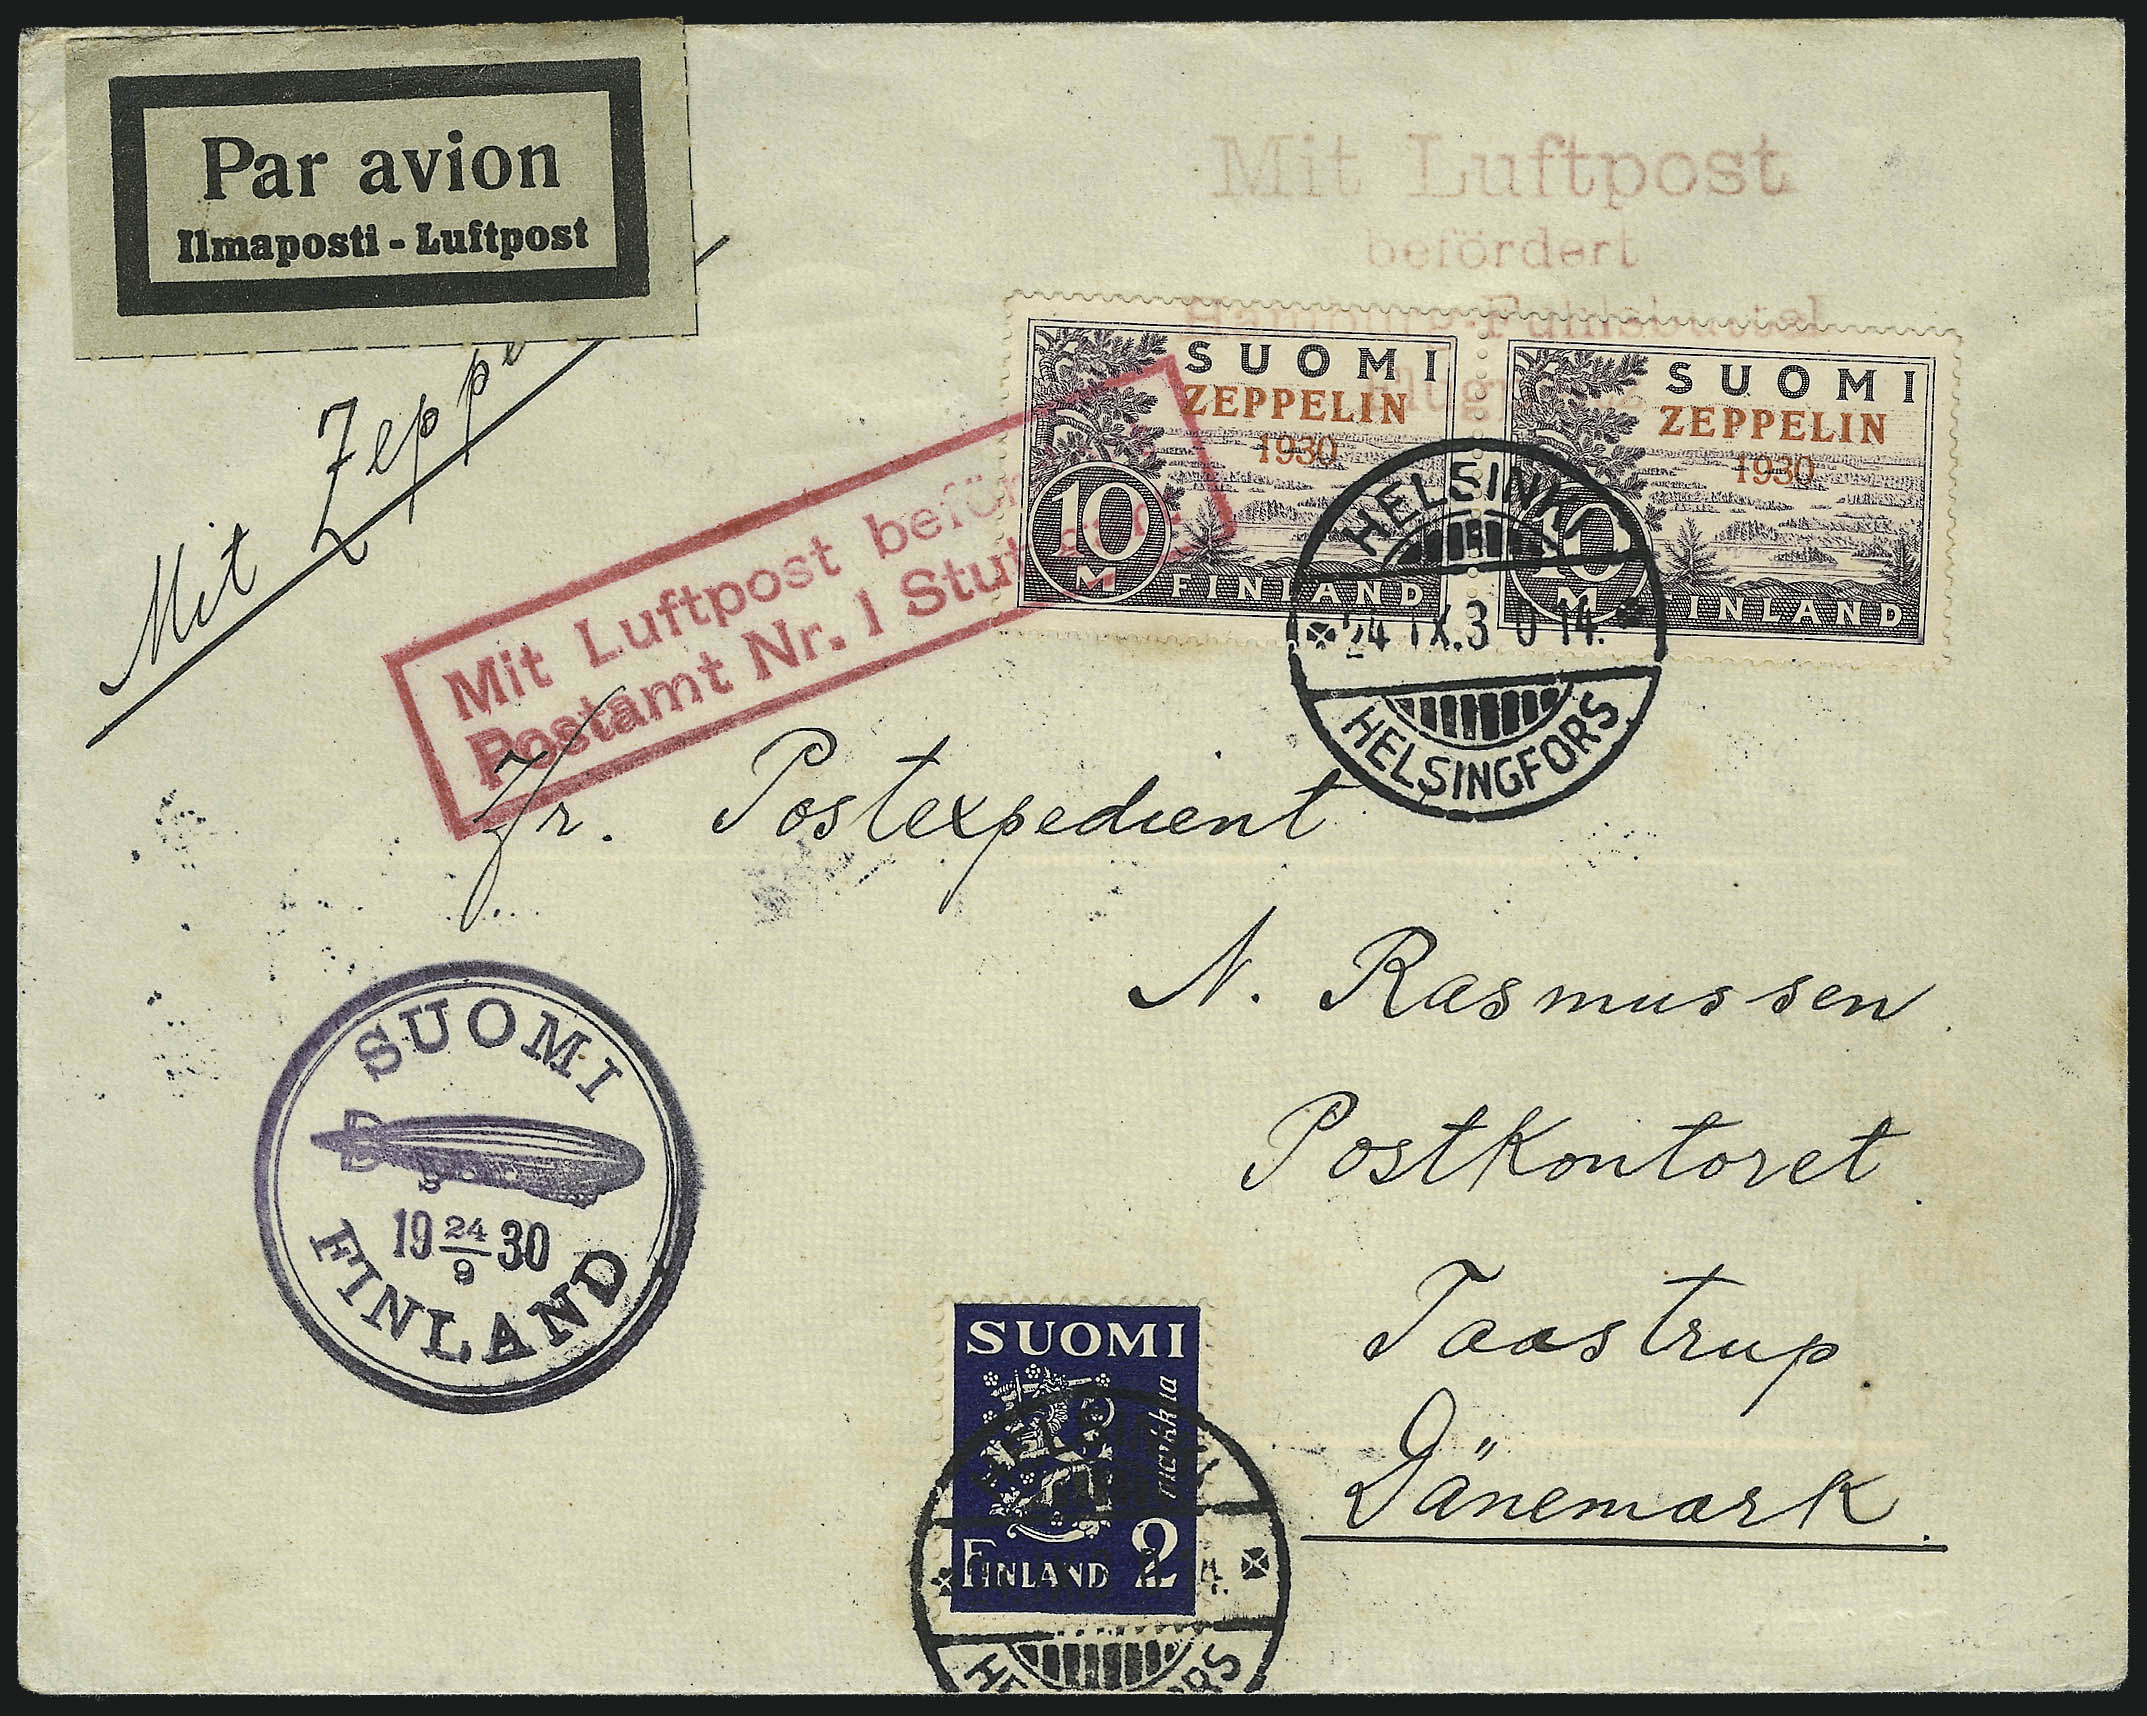 Par avion
Ilmaposti - Luftpost
Mit Luftpost
befördert
Mit
SUOMI
ZEPPELIN
1930
10
M
FINLAND
SUOMI
ZEPPELIN
1930
10
M
FINLAND
HELSINKI
24 IX.30 14.
HELSINGFORS
Mit Luftpost
Postamt Nr. 1
Postexpedient
N. Rasmussen
Postkontoret
Taastrup
Dänemark.
SUOMI
19 24/9 30
FINLAND
SUOMI
markkaa
FINLAND 2